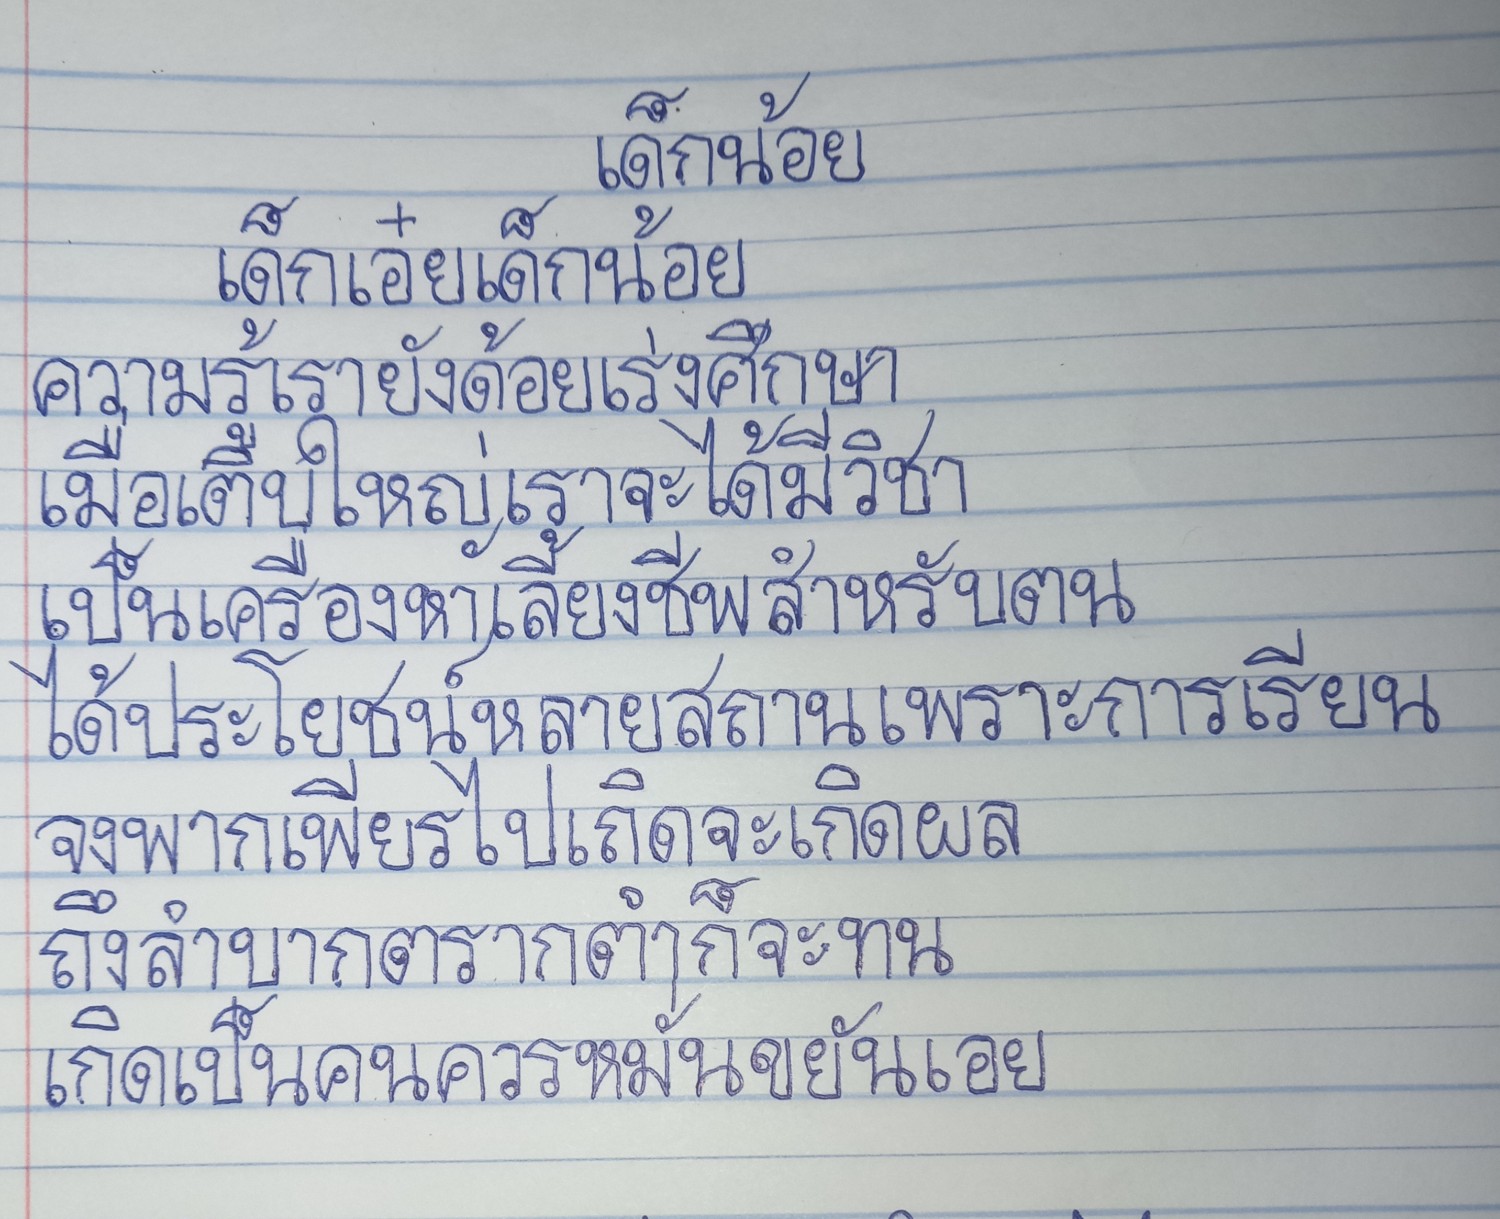 เด็กน้อย
เด็กเอ๋ยเด็กน้อย
ความรู้เรายังด้อยเร่งศึกษา
เมื่อเติบใหญ่เราจะได้มีวิชา
เป็นเครื่องหาเลี้ยงชีพสำหรับตน
ได้ประโยชน์หลายสถานเพราะการเรียน
จงพากเพียรไปเถิดจะเกิดผล
ถึงลำบากตรากตำก็จะทน
เกิดเป็นคนควรหมั้นขยันเอย